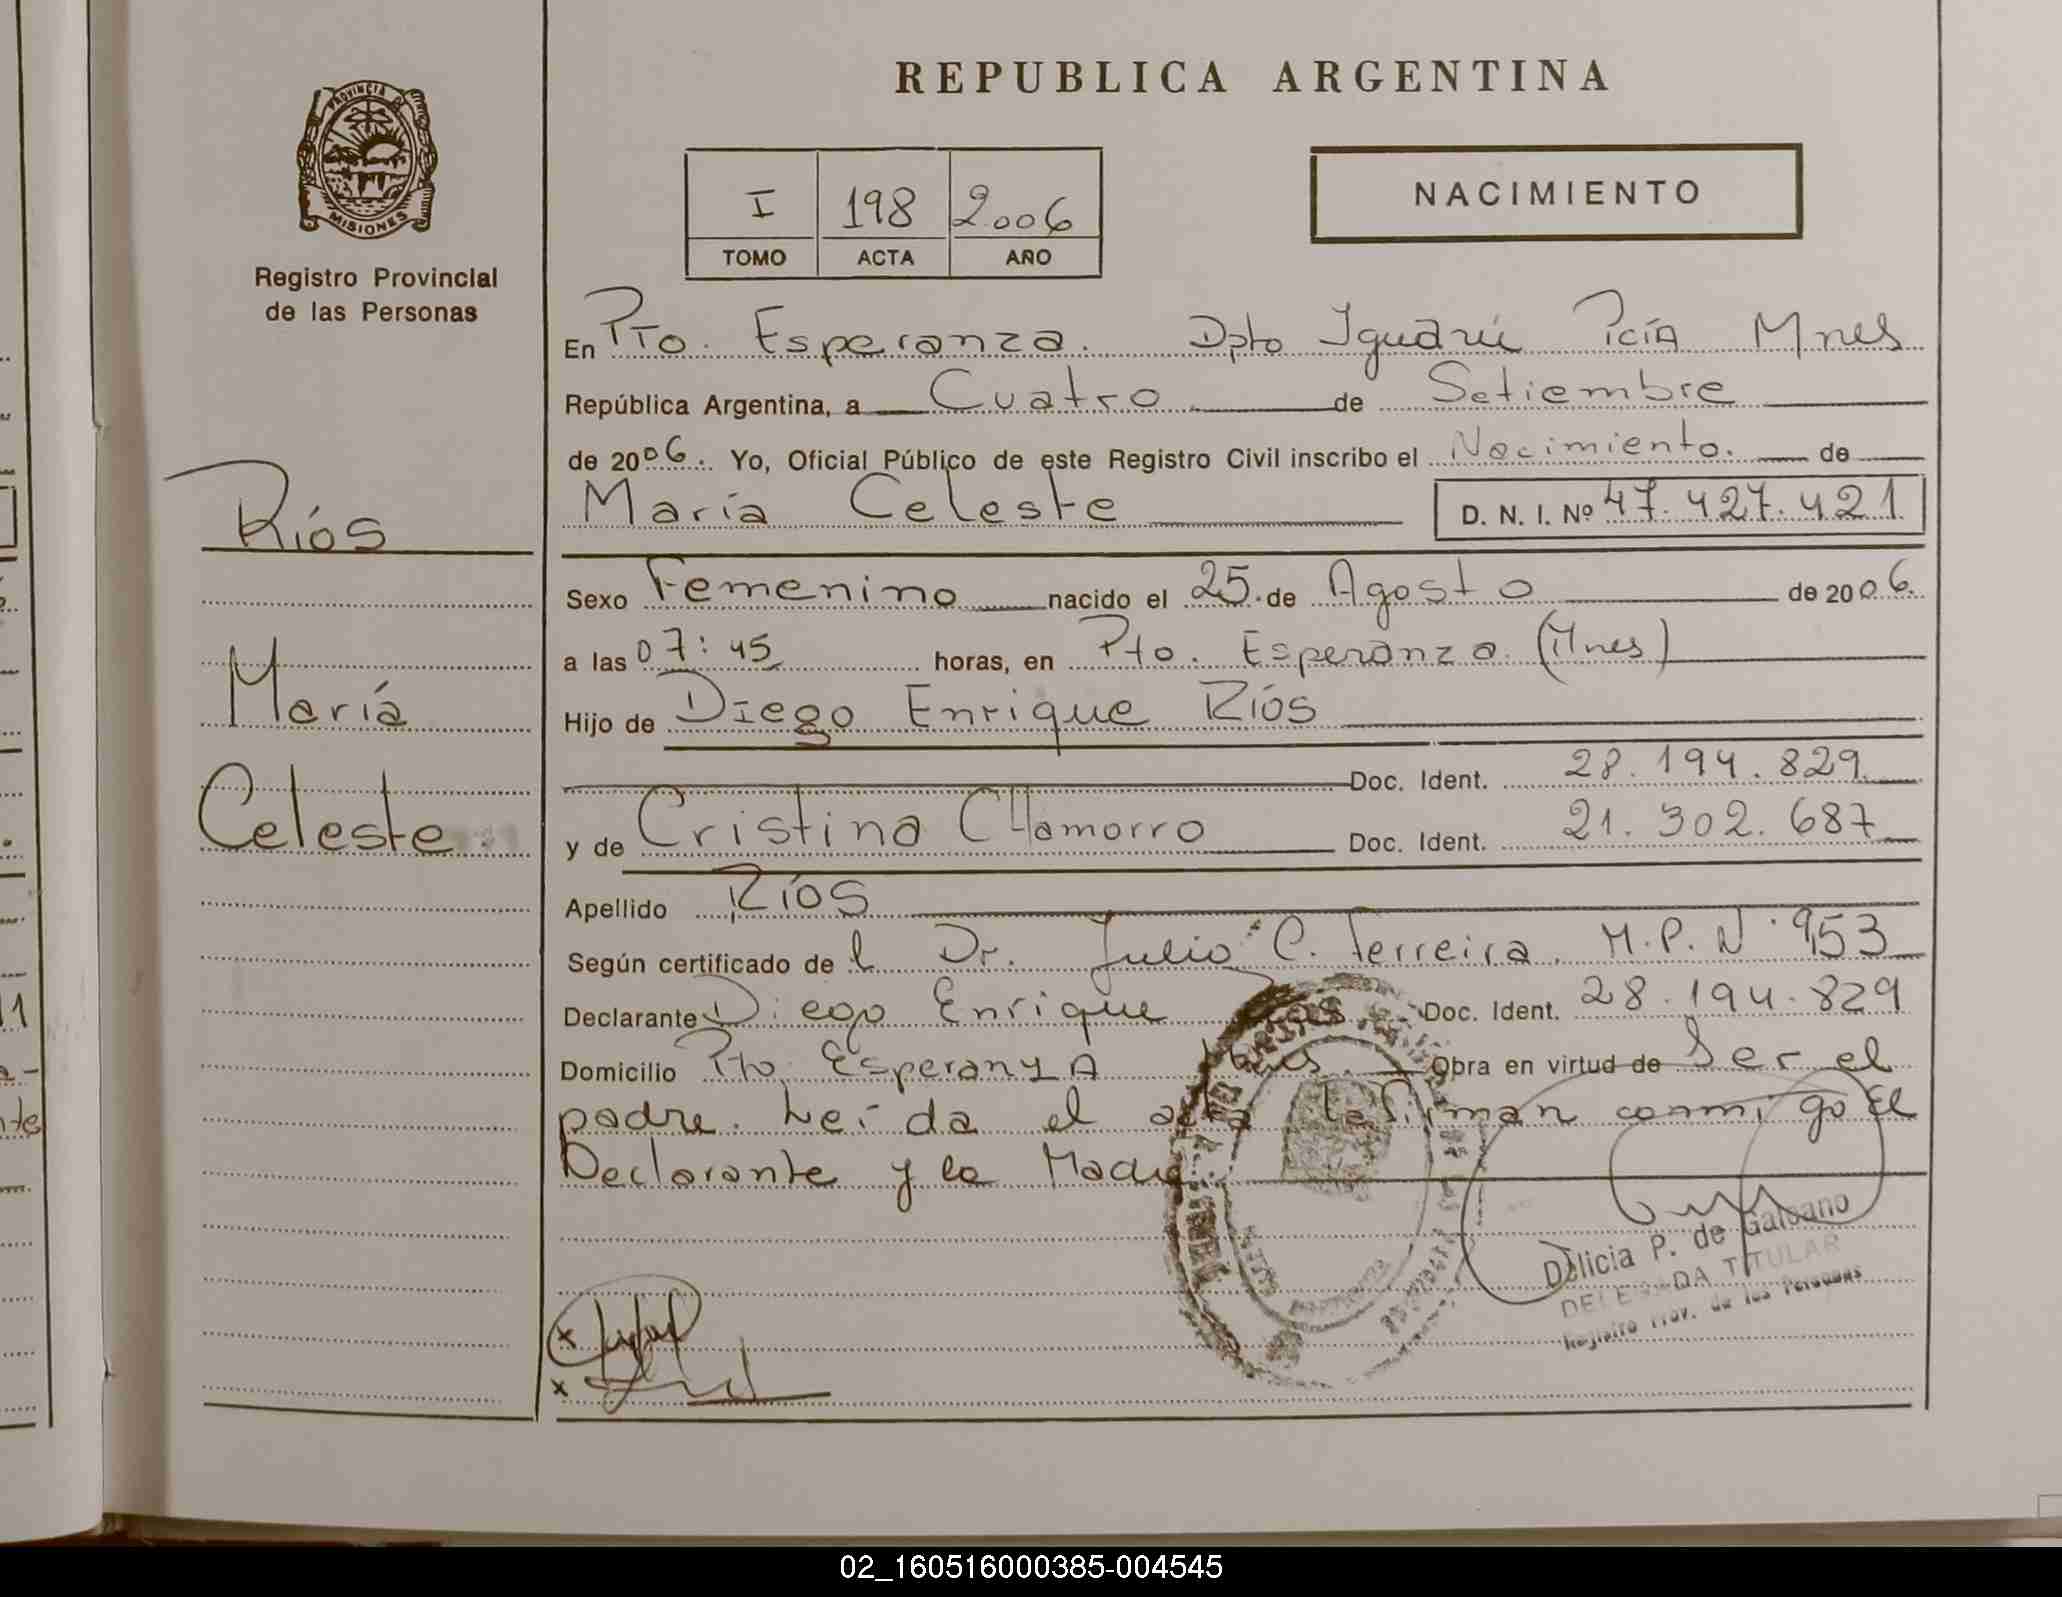 REPUBLICA ARGENTINA
PROVINCIA D
MISIONES
Registro Provincial
de las Personas
I 198 2006
TOMO ACTA AÑO
NACIMIENTO
En Pto. Esperanza. Dpto Iguazú Pcia Mnes
República Argentina, a Cuatro de Setiembre
de 2006. Yo, Oficial Público de este Registro Civil inscribo el Nacimiento. de
María Celeste D. N. I. Nº 47.427.421
Ríos
María
Celeste
Sexo Femenino nacido el 25. de Agosto de 2006.
a las 07:45 horas, en Pto. Esperanza (Mnes)
Hijo de Diego Enrique Ríos
Doc. Ident. 28.194.829
y de Cristina CHamorro Doc. Ident. 21.302.687
Apellido Ríos
Según certificado de l Dr. Julio C. Ferreira. M.P.N° 953
Declarante Diego Enrique Ríos Doc. Ident. 28.194.829
Domicilio Pto. EsperanzA Mnes. Obra en virtud de Ser el
padre. Leída el acta la firman conmigo El
Declarante y la Madre
Delicia P. de Galeano
DELEGADA TITULAR
Registro Prov. de las Personas
x
x
02_160516000385-004545